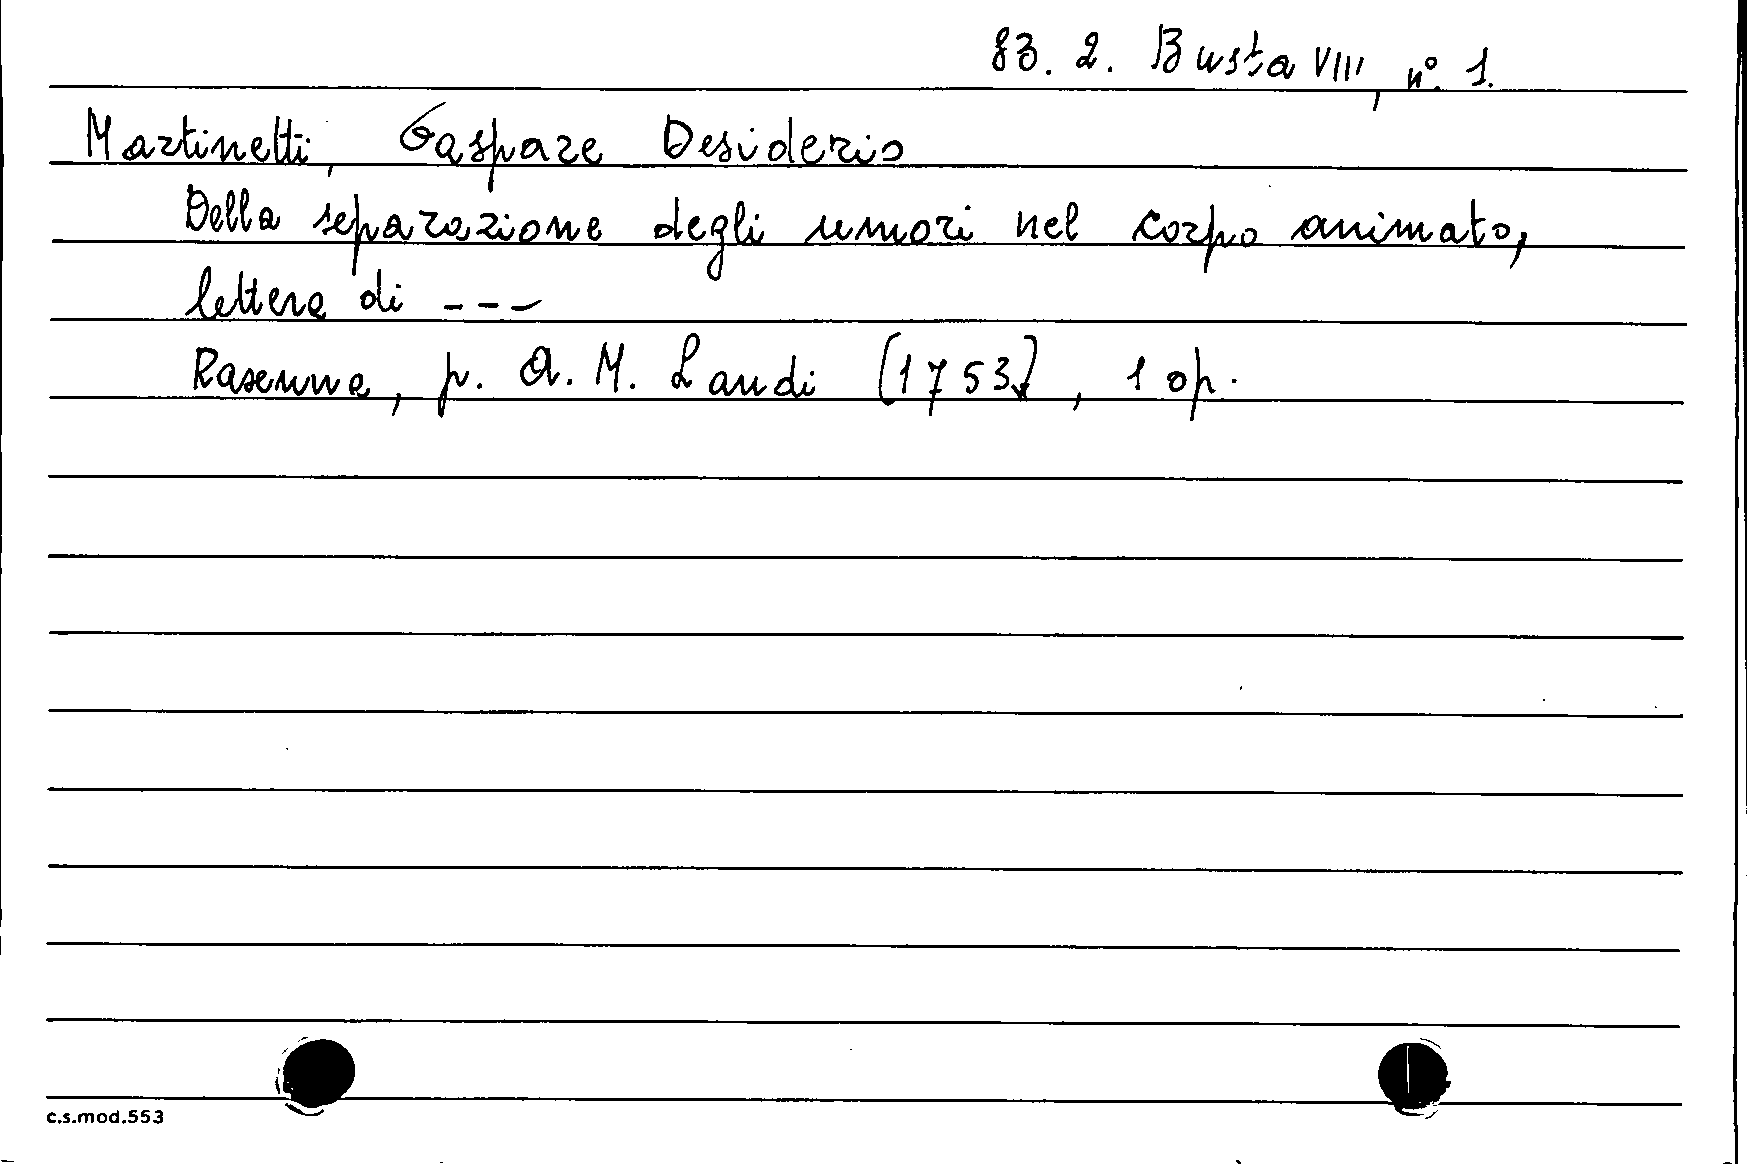 83. 2. Busta VIII, n°. 1.
Martinetti, Gaspare Desiderio
Della separazione degli umori nel corpo animato,
lettera di ---
Ravenna, p. A. M. Landi (1753), 1 op.
c.s.mod.553